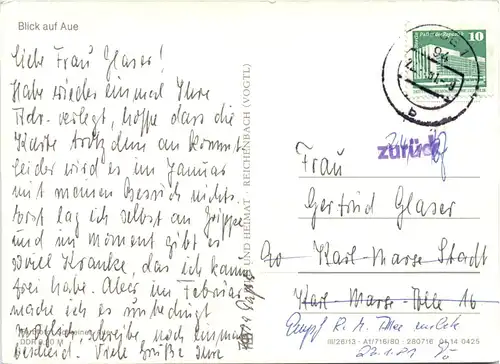 Blick auf Aue
Liebe Frau Glaser!
Habe wieder einmal Ihre
Adr. verlegt, hoffe dass die
Karte trotzdem ankommt
leider wird es im Januar
mit meinem Besuch nichts.
Erst lag ich selbst an Grippe
und im Moment gibt es
soviel Kranke, das ich kaum
frei habe. Aber im Februar
mache ich es unbedingt
möglich, schreibe noch einmal
bescheid. Viele Grüße Ihre
DDR 0,20 M
UND HEIMAT REICHENBACH (VOGTL)
10
zurück
Frau
Gertrud Glaser
90 Karl-Marx-Stadt
Karl-Marx-Allee 16
III/26/13 · Af/716/80 · 280716 01 14 0425